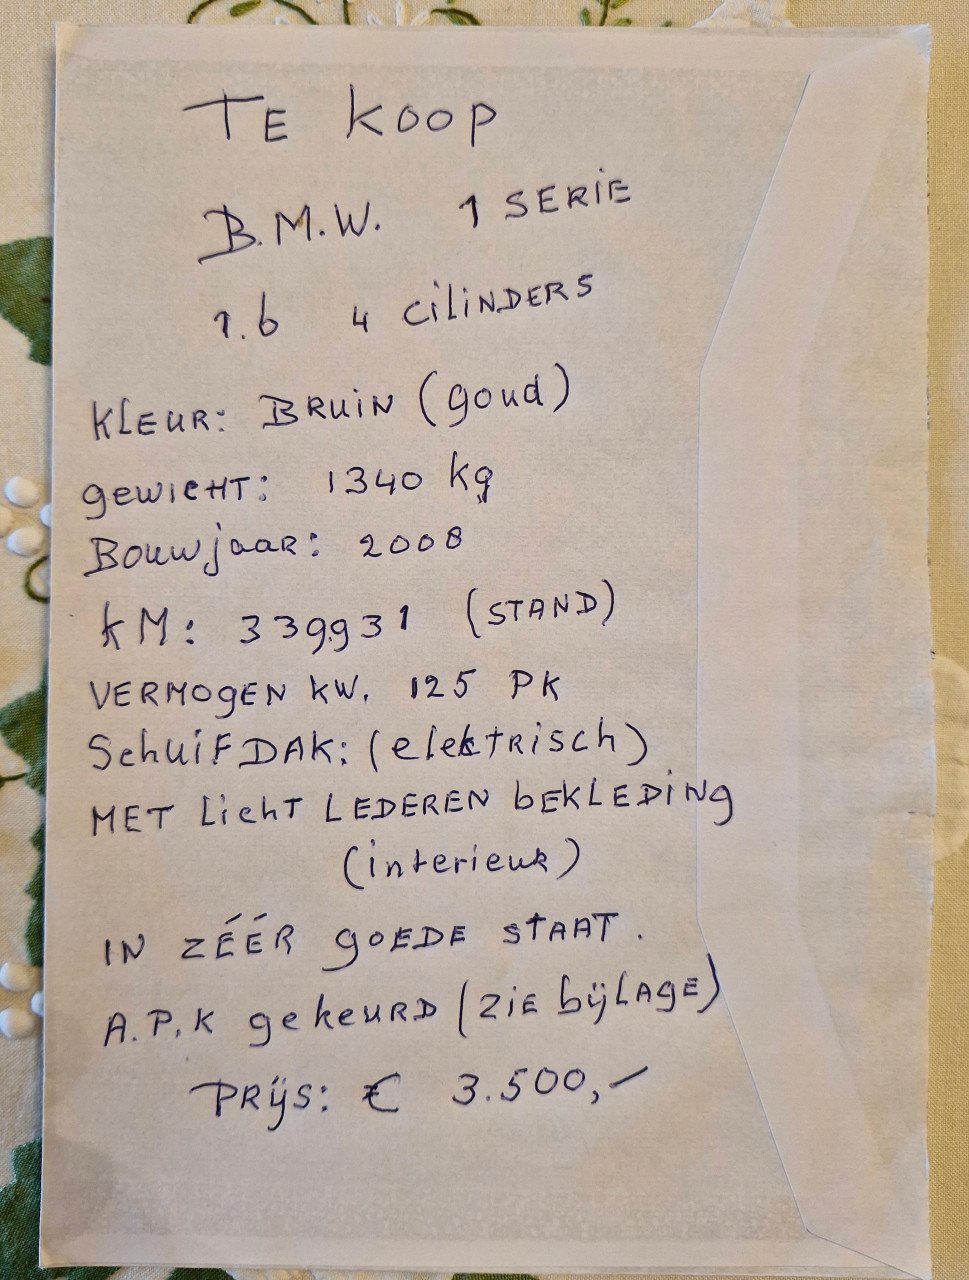 TE KOOP
B.M.W. 1 SERIE
1.6 4 CILINDERS
KLEUR: BRUIN (goud)
gewicHT: 1340 kg
Bouwjaar: 2008
KM: 339931 (STAND)
VERMOGEN KW. 125 PK
SchuiFDAK: (elektRisch)
MET LichT LEDEREN bEKLEDiNg
(interieur)
IN ZÉÉR goEDE STAAT.
A.P.K gekeuRD (ZiE bijLAgE)
PRijs: € 3.500,-